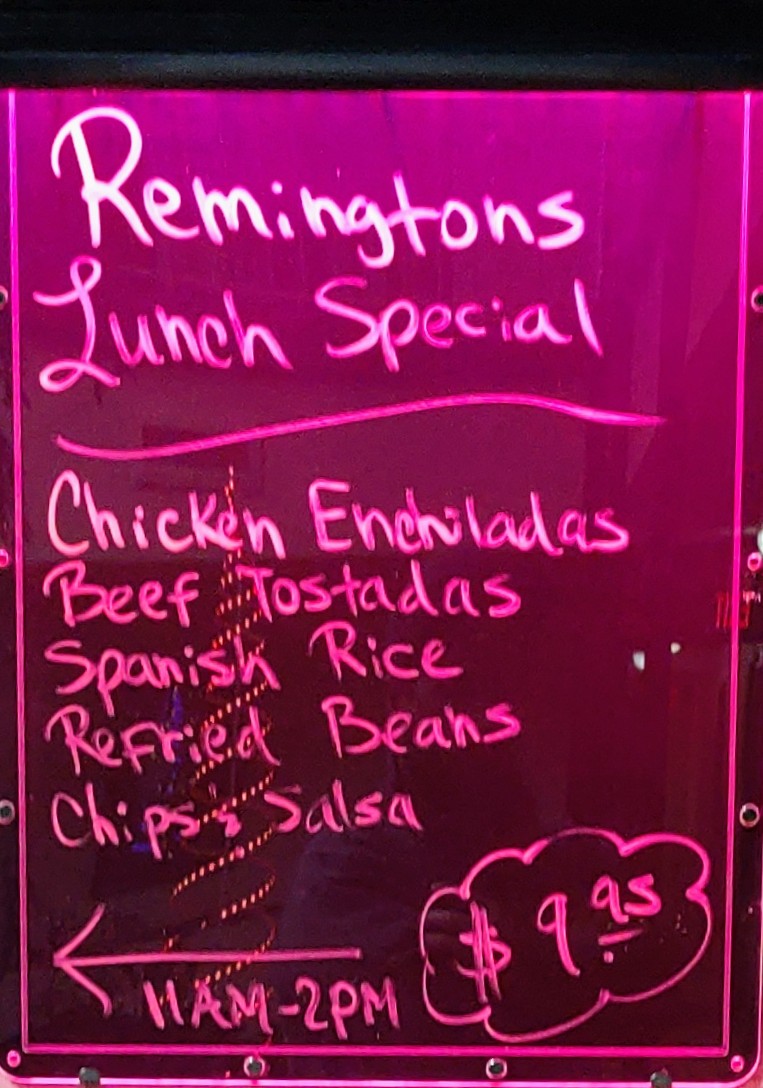 Remingtons
Lunch Special
Chicken Enchiladas
Beef Tostadas
Spanish Rice
Refried Beans
Chips & Salsa
$9.95
11AM-2PM